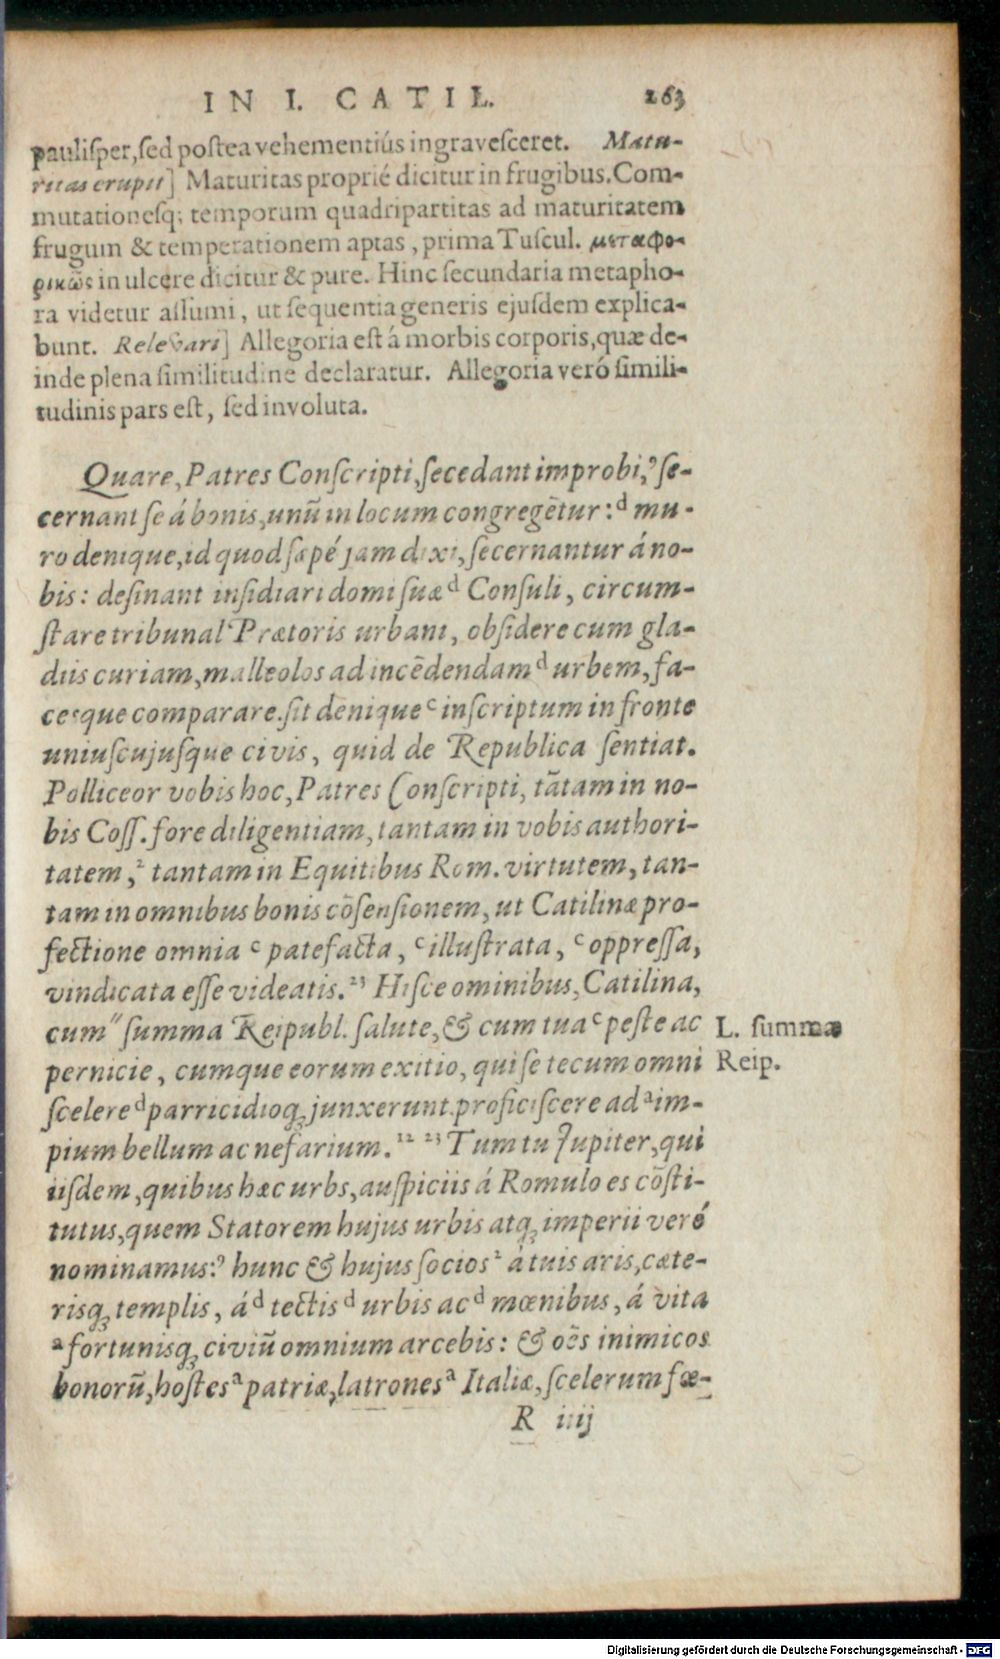 IN I. CATIL. 263
paulisper, sed postea vehementiús ingravesceret. Matu-
ritas erupit] Maturitas proprié dicitur in frugibus. Com-
mutationesq; temporum quadripartitas ad maturitatem
frugum & temperationem aptas, prima Tuscul. μεταφο-
ρικῶς in ulcere dicitur & pure. Hinc secundaria metapho-
ra videtur assumi, ut sequentia generis ejusdem explica-
bunt. Relevari] Allegoria est á morbis corporis, quæ de-
inde plena similitudine declaratur. Allegoria veró simili-
tudinis pars est, sed involuta.
Quare, Patres Conscripti, secedant improbi,⁹ se-
cernant se á bonis, unũ in locum congregẽtur:ᵈ mu-
ro denique, id quod sæpé jam dixi, secernantur á no-
bis: desinant insidiari domi suæᵈ Consuli, circum-
stare tribunal Prætoris urbani, obsidere cum gla-
diis curiam, malleolos ad incẽdendamᵈ urbem, fa-
cesque comparare. sit deniqueᶜ inscriptum in fronte
uniuscujusque civis, quid de Republica sentiat.
Polliceor vobis hoc, Patres Conscripti, tãtam in no-
bis Coss. fore diligentiam, tantam in vobis authori-
tatem,² tantam in Equitibus Rom. virtutem, tan-
tam in omnibus bonis cõsensionem, ut Catilinæ pro-
fectione omnia ᶜ patefacta, ᶜ illustrata, ᶜ oppressa,
vindicata esse videatis.²³ Hisce ominibus, Catilina,
cum" summa Reipubl. salute, & cum tuaᶜ peste ac
L. summæ
pernicie, cumque eorum exitio, qui se tecum omni
Reip.
scelereᵈ parricidioq; junxerunt. proficiscere adᵃ im-
pium bellum ac nefarium.¹² ²³ Tum tu Jupiter, qui
iisdem, quibus hæc urbs, auspiciis á Romulo es cõsti-
tutus, quem Statorem hujus urbis atq; imperii veré
nominamus:⁹ hunc & hujus socios² á tuis aris, cæte-
risq; templis, áᵈ tectisᵈ urbis acᵈ mœnibus, á vita
ᵃ fortunisq; civiũ omnium arcebis: & oẽs inimicos
bonorũ, hostesᵃ patriæ, latronesᵃ Italiæ, scelerum fœ-
R iiij
Digitalisierung gefördert durch die Deutsche Forschungsgemeinschaft - DFG